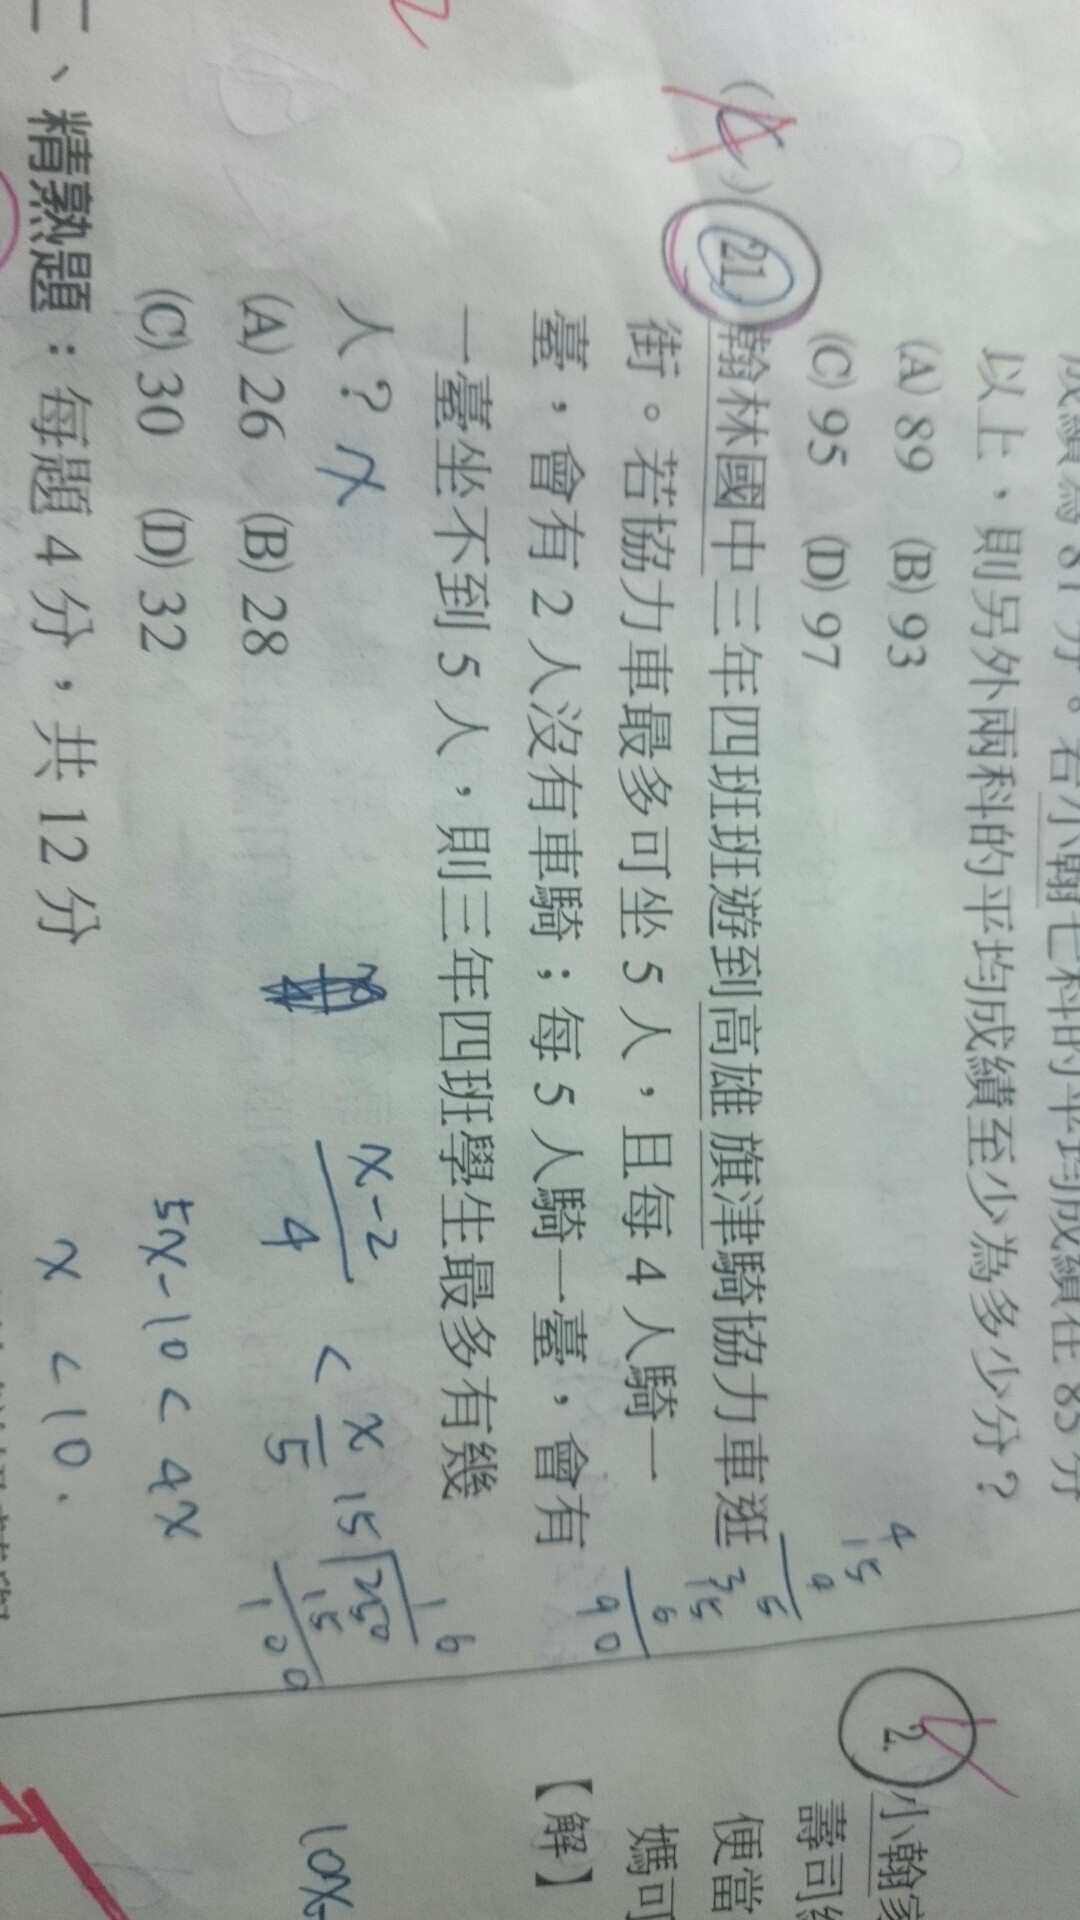 成績為 81 分。若小翰七科的平均成績在 85 分
以上，則另外兩科的平均成績至少為多少分？
(A) 89 (B) 93
(C) 95 (D) 97
(21) 翰林國中三年四班班遊到高雄旗津騎協力車逛
街。若協力車最多可坐 5 人，且每 4 人騎一
臺，會有 2 人沒有車騎；每 5 人騎一臺，會有
一臺坐不到 5 人，則三年四班學生最多有幾
人？x
(A) 26 (B) 28
(C) 30 (D) 32
x-2/4 < x/5
5x-10 < 4x
x < 10.
二、精熟題：每題 4 分，共 12 分
2.
小翰家
壽司
便當
媽可
【解】
10x-